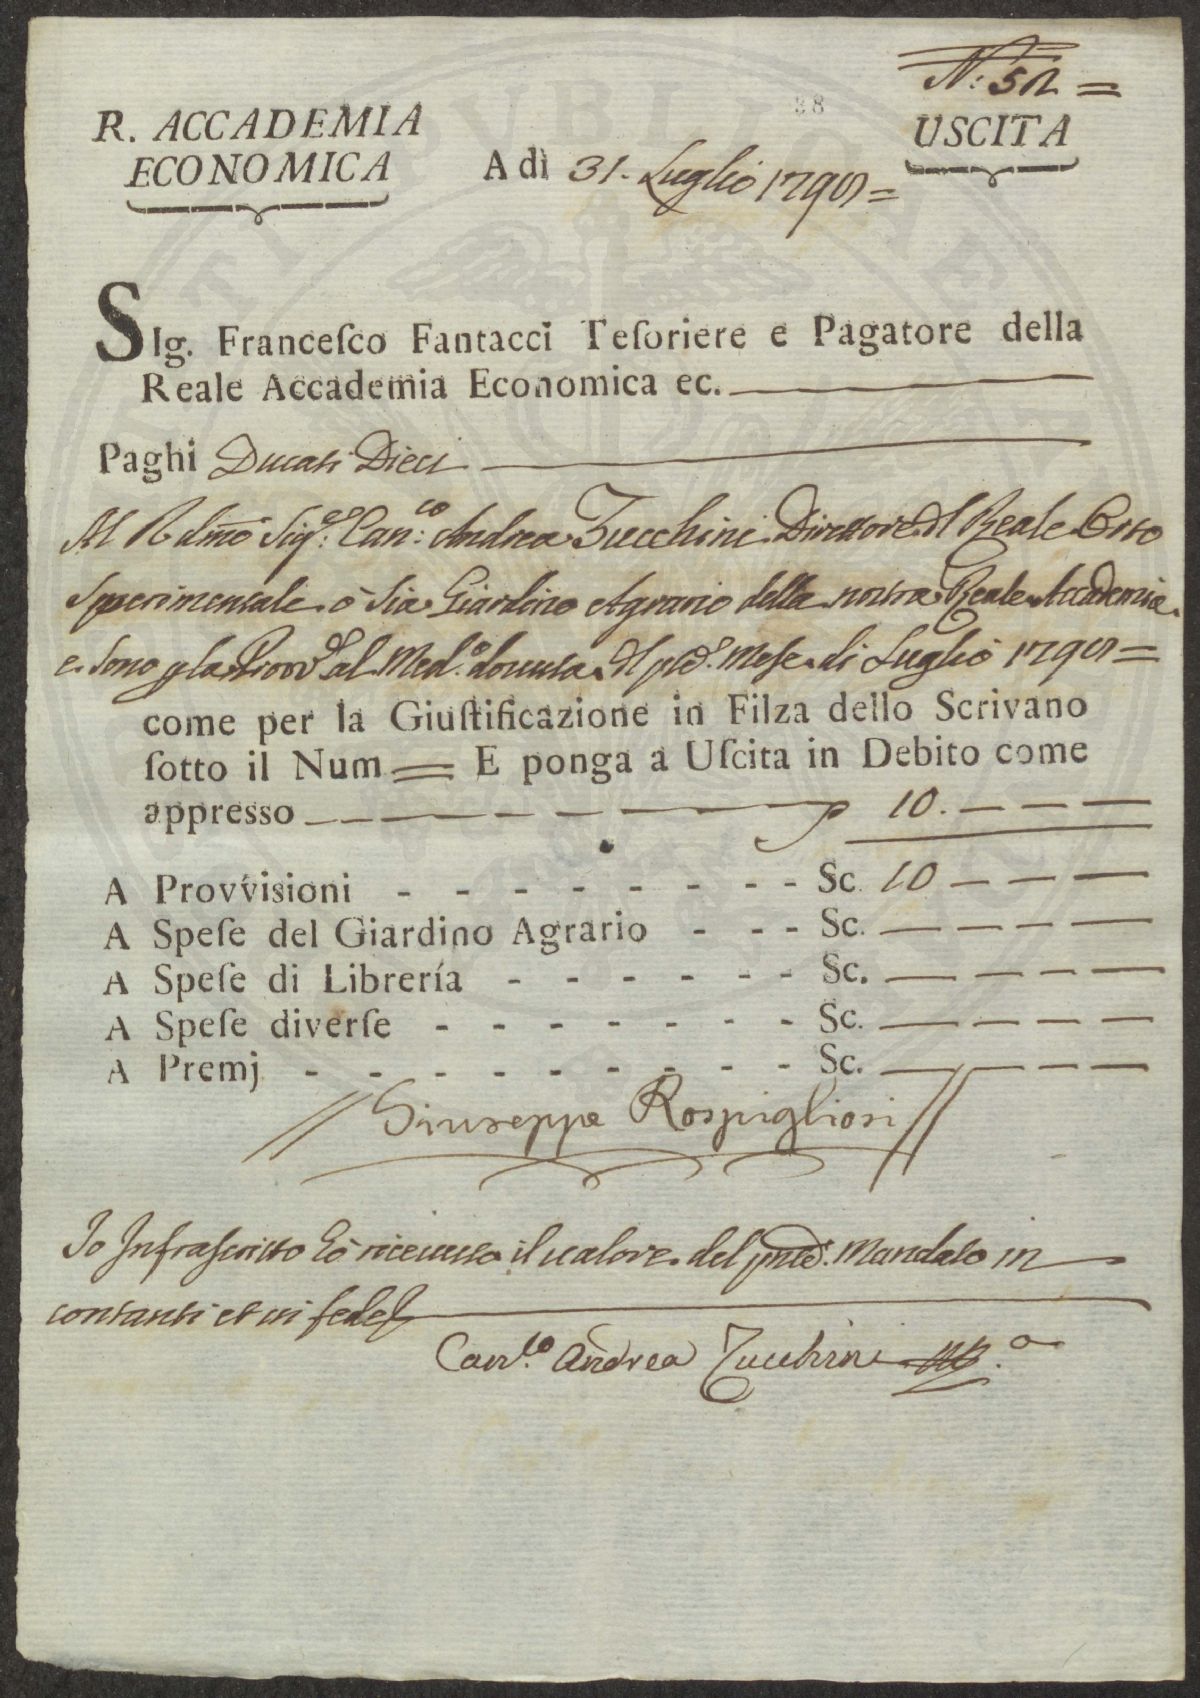 N: 52 =
38
R. ACCADEMIA
ECONOMICA
A dì 31. Luglio 1790 =
USCITA
SIg. Franceſco Fantacci Teſoriere e Pagatore della
Reale Accademia Economica ec.
Paghi Ducati Dieci
Al R.dmo Sig.re Can.co Andrea Zucchini Direttore dl Reale Orto
Sperimentale o sia Giardino Agrario della nostra Reale Accademia
e sono p la Provv.e al Med.o dovuta dl pd.o Mese di Luglio 1790 =
come per la Giuſtificazione in Filza dello Scrivano
ſotto il Num = E ponga a Uſcita in Debito come
appresso — — — — — 10. — — —
A Provviſioni - - - - - - - - Sc. 10 — — —
A Speſe del Giardino Agrario - - - Sc. — — — —
A Speſe di Librería - - - - - - Sc. — — — —
A Speſe diverſe - - - - - - - Sc. — — — —
A Premj - - - - - - - - - Sc. — — — —
// Giuseppe Rospigliosi //
Io Infrascritto hò riceuuto il ualore del Mandato in
contanti et in fede
Can.co Andrea Zucchini